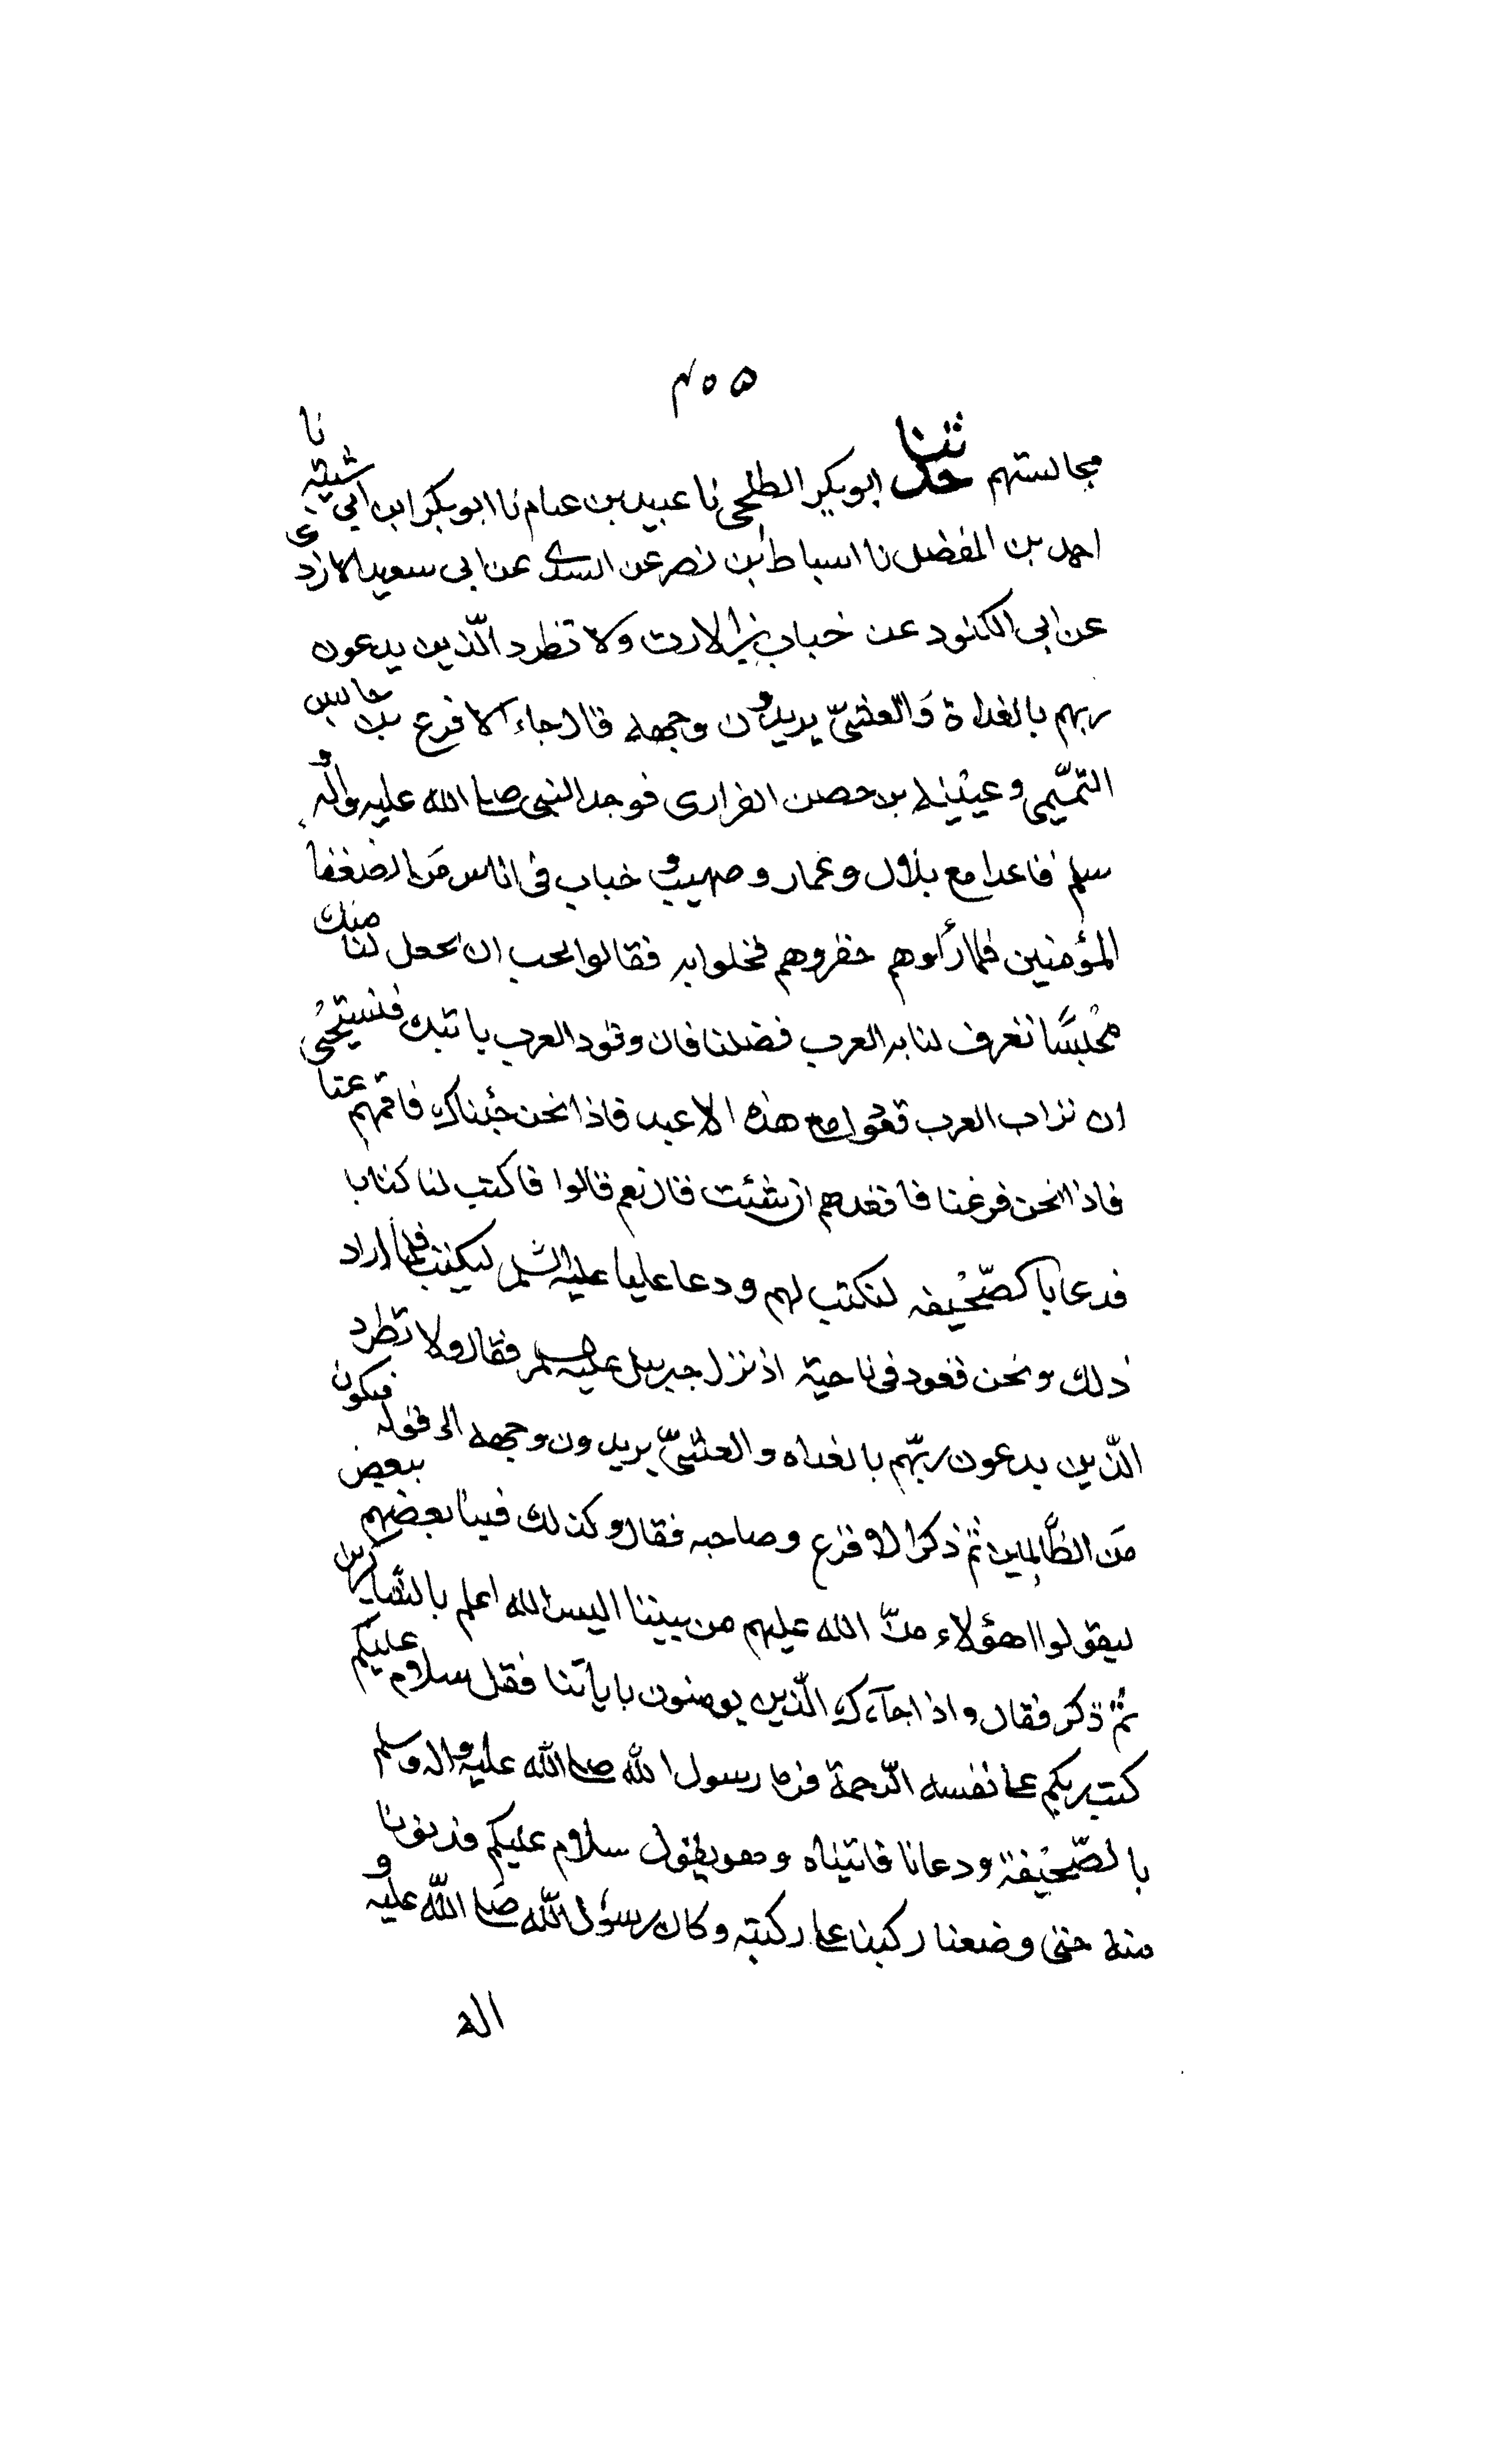 ٤٥٥
مجالستهم حدثنا ابو بكر الطلحى نا عبيد بن عنام نا ابو بكر ابن ابي شيبة نا
احمد بن المفضل نا اسباط ابن نصر عن السدى عن ابى سعيد الازدى
عن ابى الكنود عن خباب بن الارت ولا تطرد الّذين يدعون
ربهم بالغداة وَالعشىّ يريدون وجهه قال جاء الاقرع بن حابس
التمّيمى وعيْينه بن حصن الفزارى فوجد النبى صلى الله عليه واله و
سلم قاعدا مع بلال وعمار وصهيب و خباب فى اناس مَن الضعفا
المؤمنين فلما رأوهم حقروهم فخلوا به فقالوا نحب ان تجعل لنا منك
مجْلسًا تعرف لنا به العرب فضلنا فان وفود العرب ياتيك فنستحْيى
ان نراب العرب قعودا مع هذه الاعبد فاذا نحن جئناك فاقمهم عنا
فاذا نحن فرغنا فاقعدهم ان شئت قال نعم قالوا فاكتب لنا كتابا
فدعا باكصّحْيفه لنكتب لهم ودعا عليا عليه السلم ليكتب فلما اراد
ذلك ونحن قعود فى ناحية اذ نزل جبريل عليه السلم فقال ولا تطرد
الّذين يدعون ربّهم بالغداه والعشىّ يريدون وجهه الى قوله فتكون
مَن الظَّالمين ثمّ ذكر الاقرع وصاحبه فقال وكذلك فتنا بعضهم ببعض
ليقولوا اهؤلاء منّ الله عليهم من بيننا اليس الله اعلم بالشّاكرين
ثمّ ذكر فقال واذا جآءك الّذين يومنون باياتنا فقل سلام عليكم
كتب ربكم على نفسه الرّحمة فرما رسول الله صلى الله عليه واله وسلم
بالصّحْيفة ودعانا فاتيناه وهو يقول سلام عليكم فدنونا
منه حتى وضعنا ركبنا على ركبته وكان رسوُل اللّه صَلى اللّه عليه و
اله